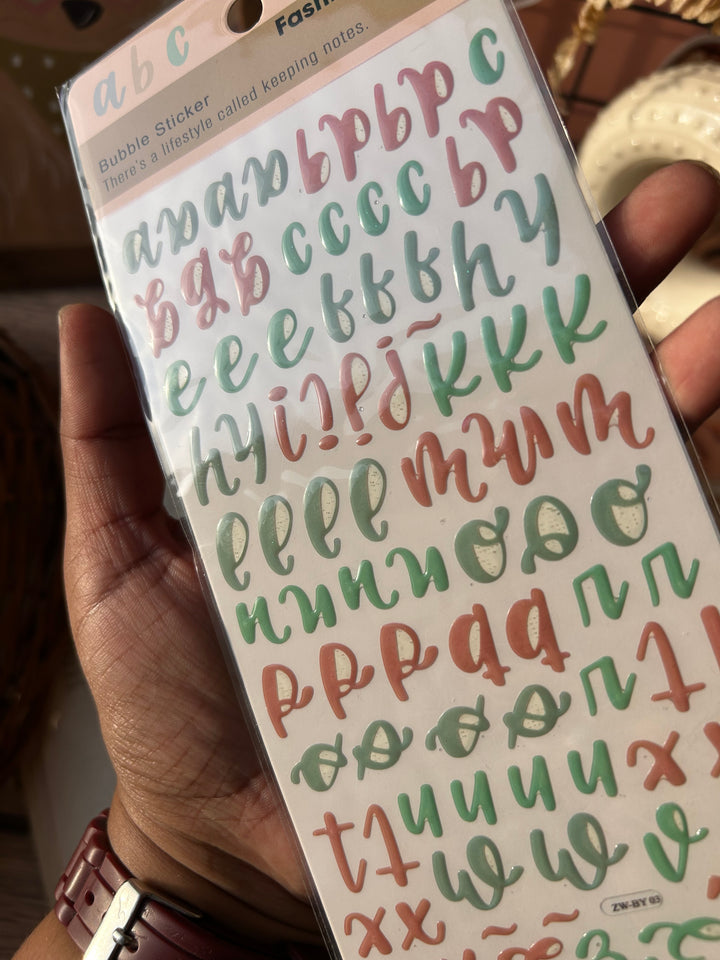 abc
Fash
Bubble Sticker
There's a lifestyle called keeping notes.
a a a a b b b b c
g g g c c c c b b
e e e f f f h h
h h i k k k
l l l l m m m
n n n n o o o
p p p q q r r
s s s s r t
t t u u u u x
x x w w v
ZW-BY 03